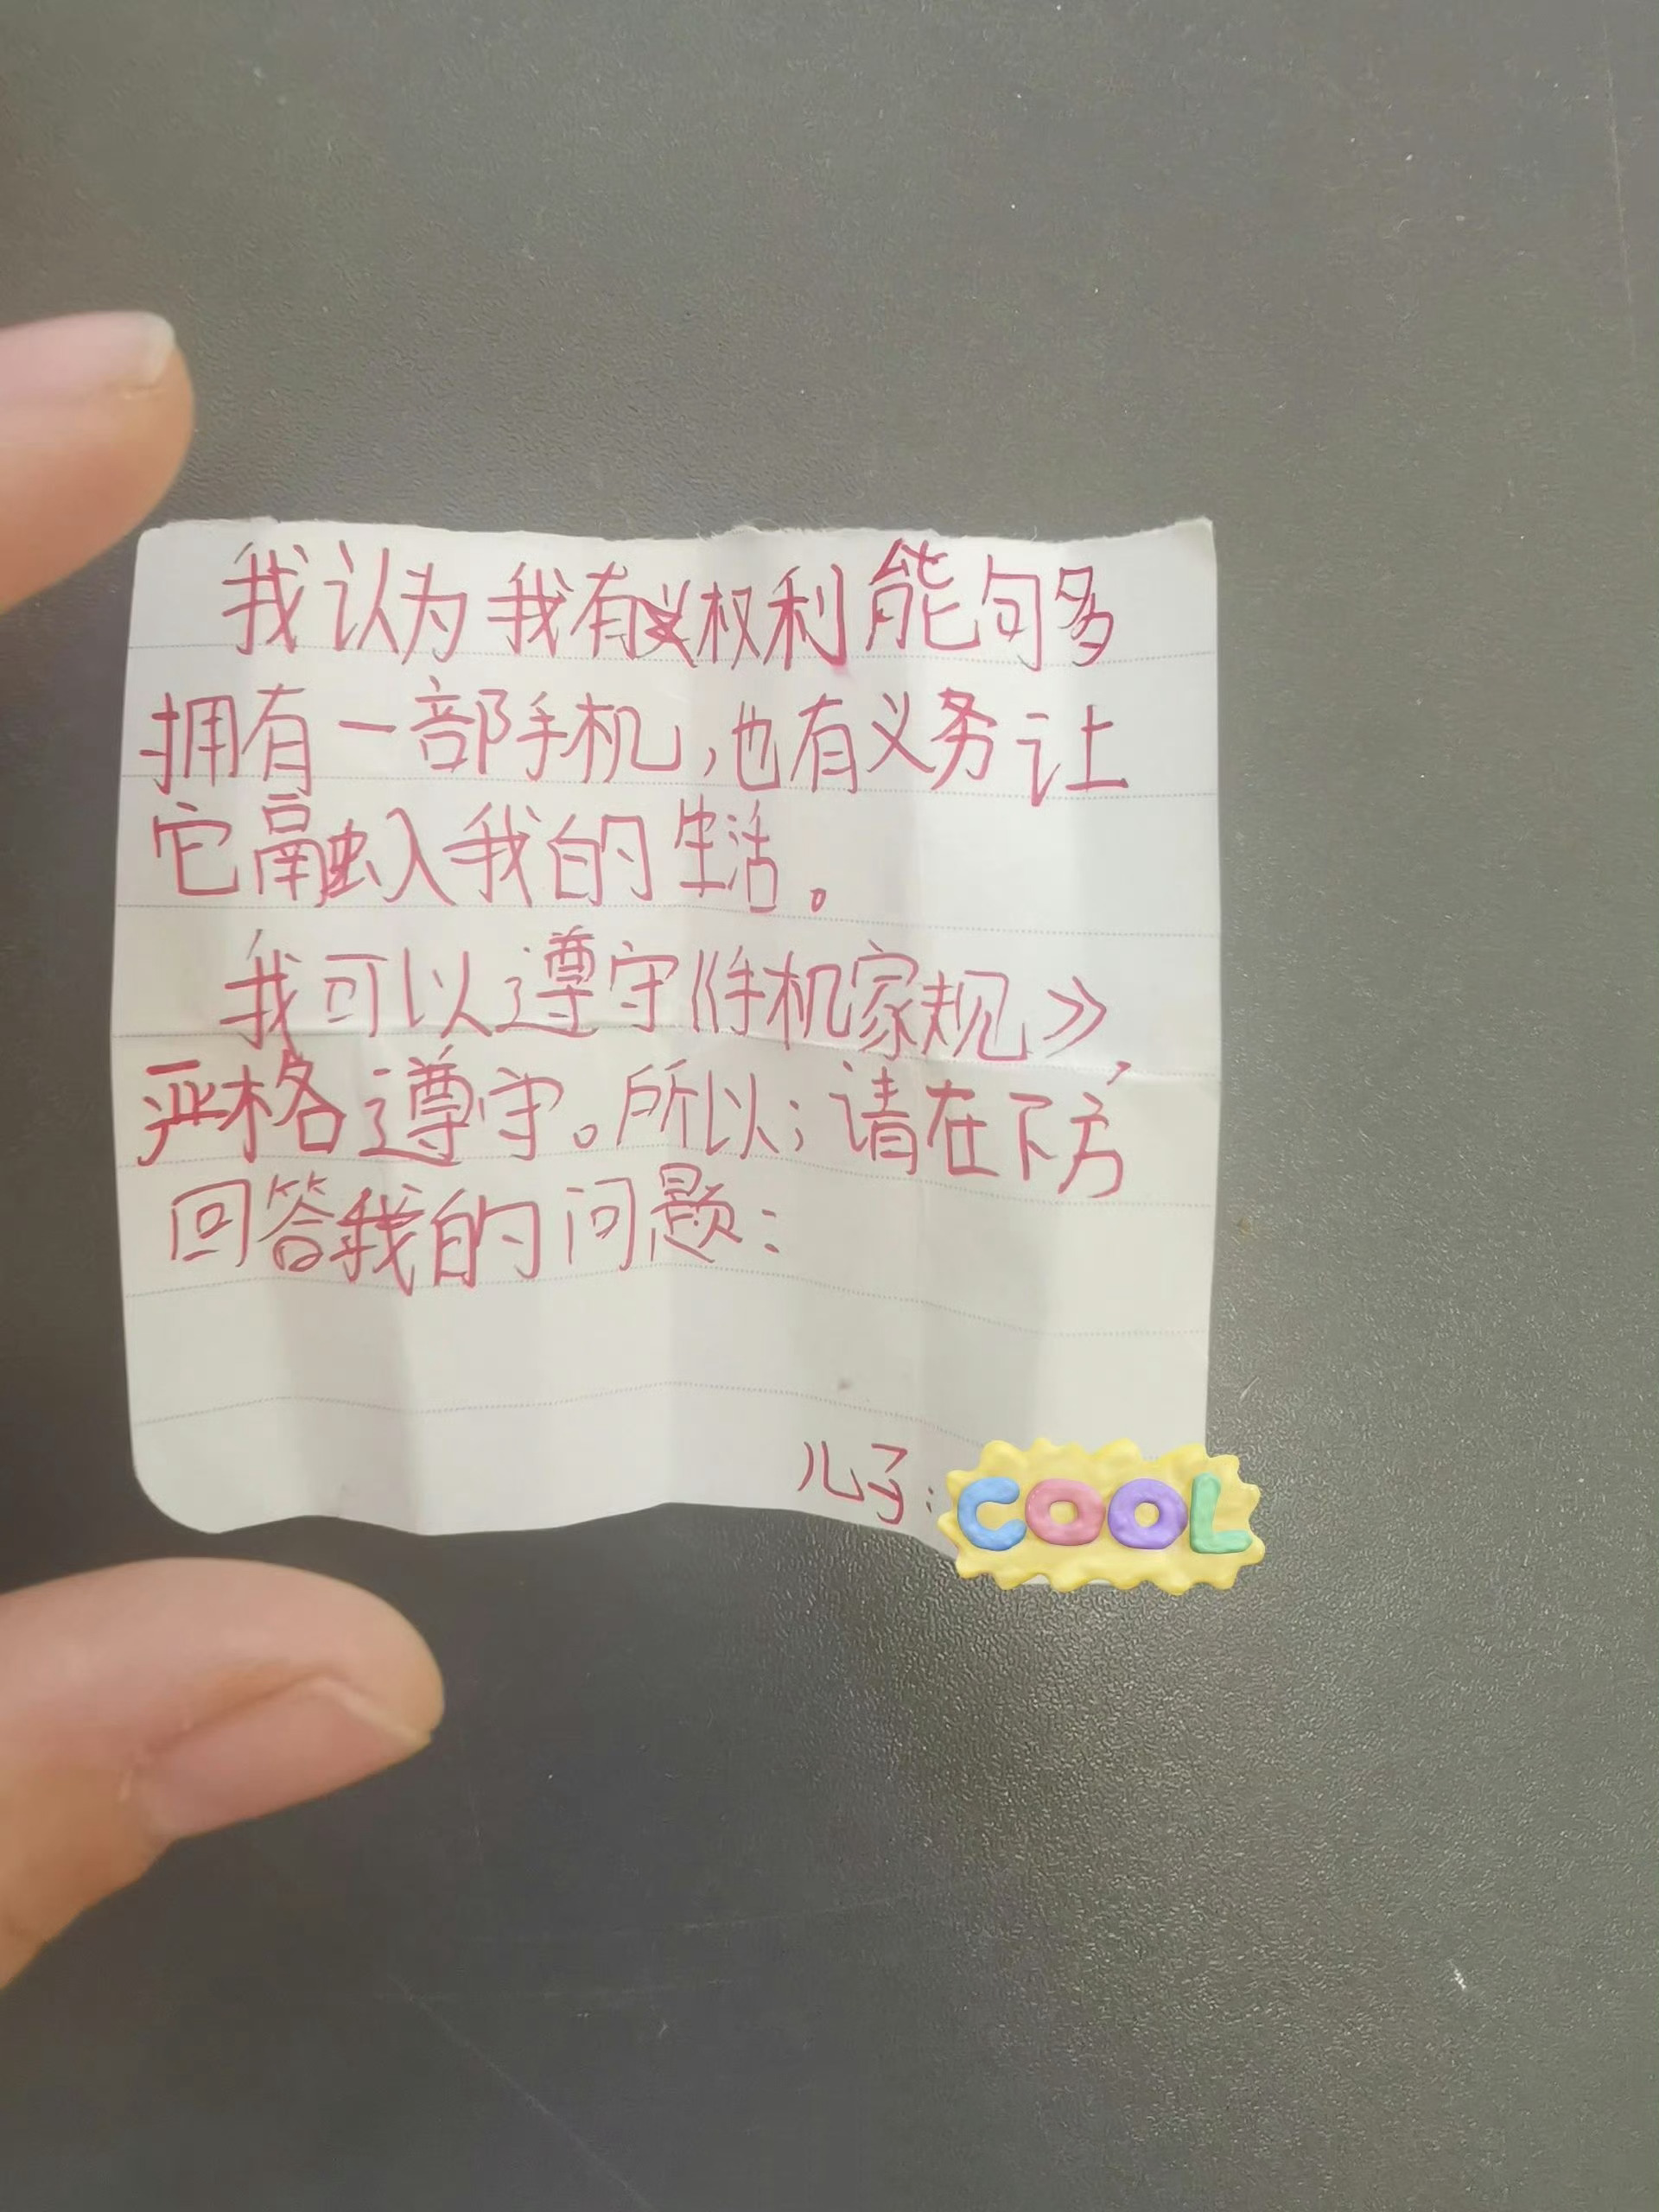 我认为我有权利能句多
拥有一部手机,也有义务让
它融入我的生活。
我可以遵守《手机家规》,
严格遵守。所以;请在下方
回答我的问题:
儿子:
COOL